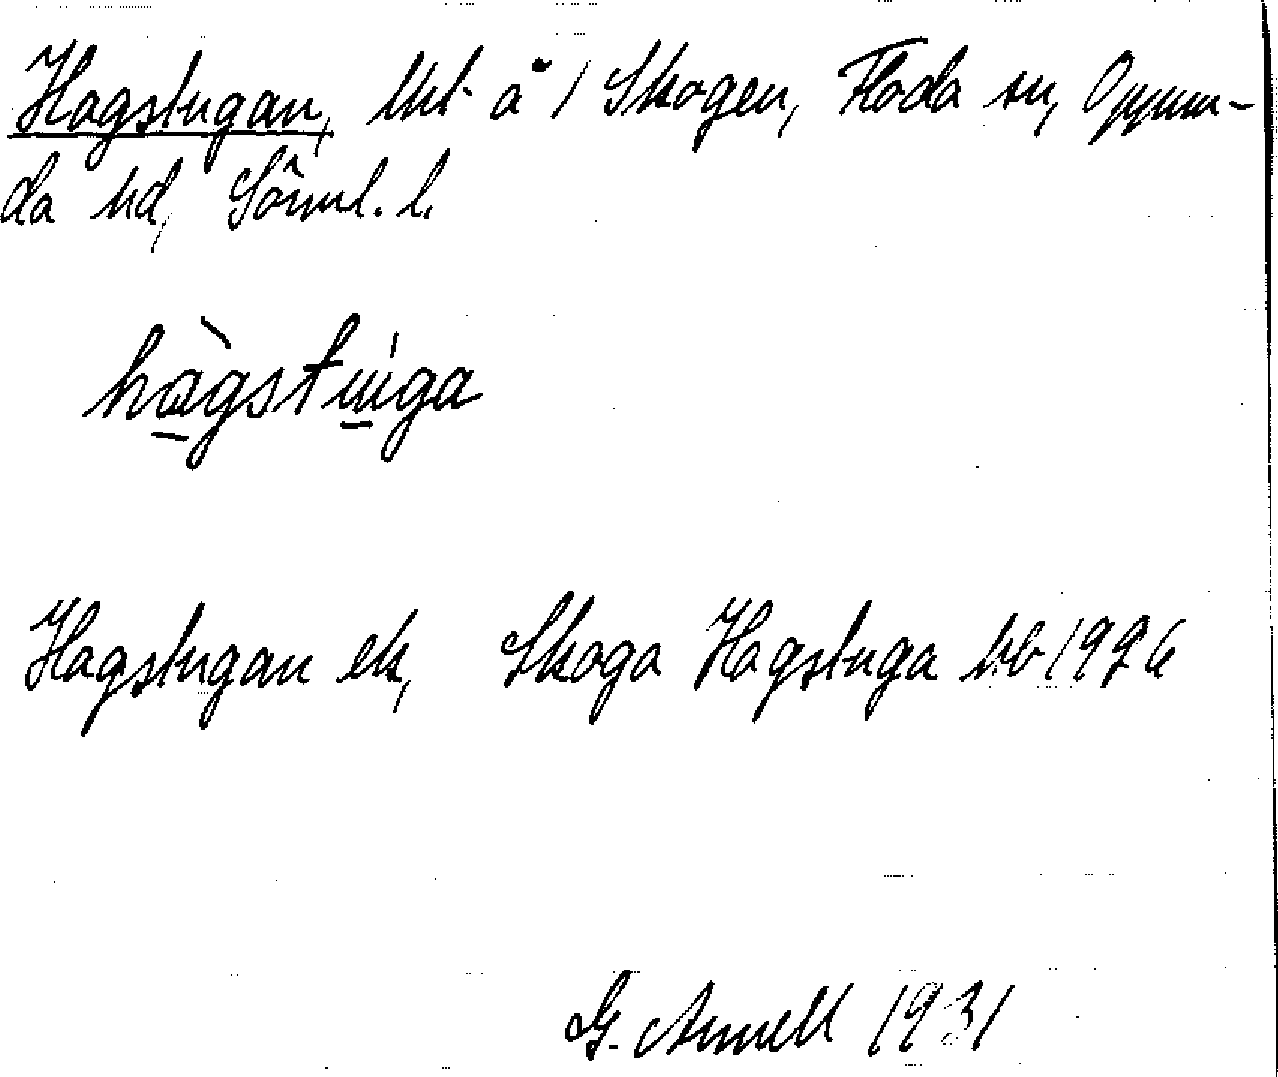 Hagstugan, lht å 1 Skogen, Floda sn, Oppun-
da hd, Sörml. l.
hàgstuga
Hagstugan ek, Skoga Hagstuga kb 1926
G. Arnell 1931